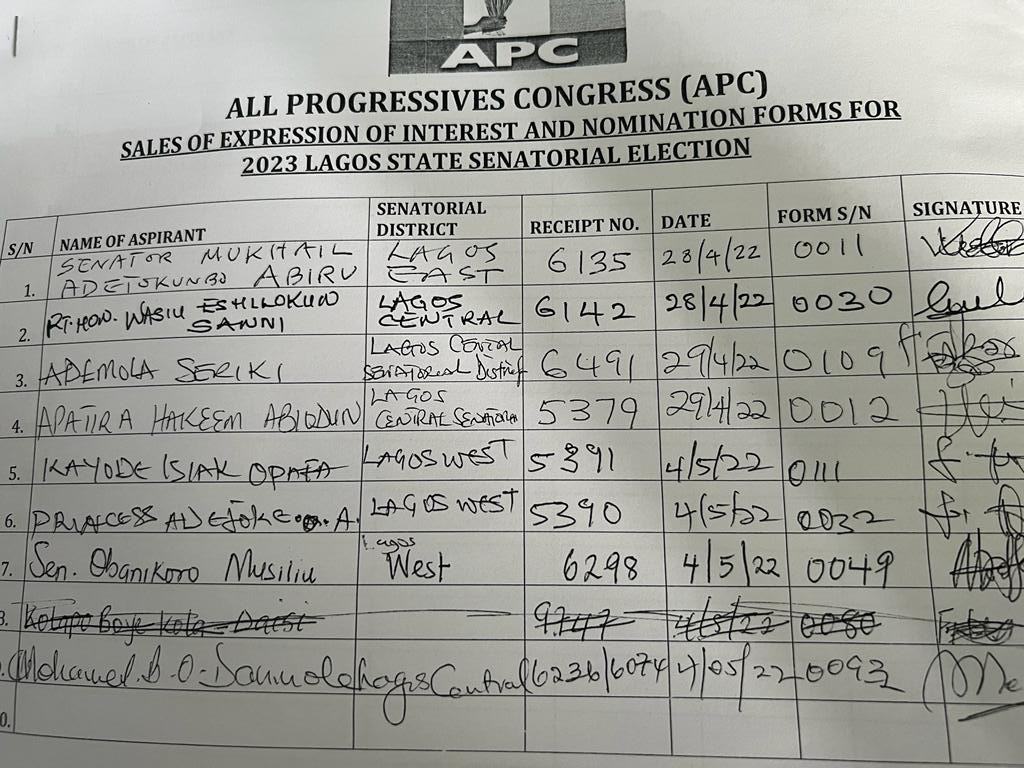 APC
ALL PROGRESSIVES CONGRESS (APC)
SALES OF EXPRESSION OF INTEREST AND NOMINATION FORMS FOR
2023 LAGOS STATE SENATORIAL ELECTION
S/N NAME OF ASPIRANT SENATORIAL DISTRICT RECEIPT NO. DATE FORM S/N SIGNATURE
1. SENATOR MUKHAIL ADETOKUNBO ABIRU LAGOS EAST 6135 28/4/22 0011
2. RT. HON. WASIU ESHILOKUN SANNI LAGOS CENTRAL 6142 28/4/22 0030
3. ADEMOLA SERIKI LAGOS CENTRAL SENATORIAL District 6491 29/4/22 0109
4. APATIRA HAKEEM ABIODUN LAGOS CENTRAL SENATORIAL 5379 29/4/22 0012
5. KAYODE ISIAK OPAFA LAGOS WEST 5391 4/5/22 0111
6. PRINCESS ADEJOKE A. LAGOS WEST 5390 4/5/22 0032
7. Sen. Obanikoro Musiliu Lagos West 6298 4/5/22 0049
8. Kolapo Boye Kola-Daisi 9747 4/5/22 0080
Mohamed. B. O. Danmole Lagos Central 6236/6074 4/05/22 0093
0.